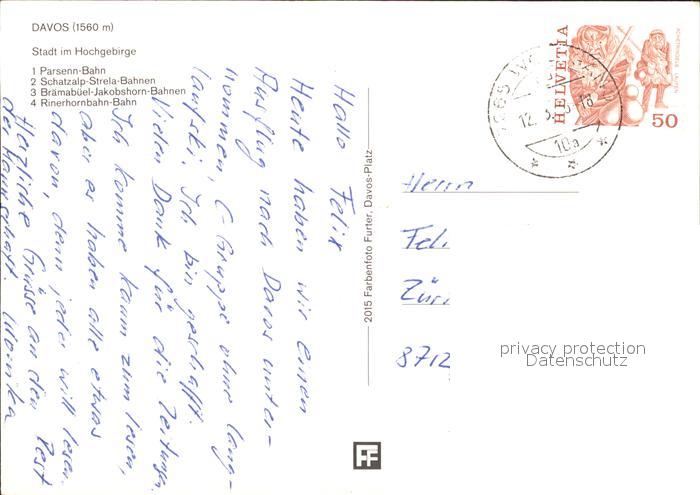 DAVOS (1560 m)
Stadt im Hochgebirge
1 Parsenn-Bahn
2 Schatzalp-Strela-Bahnen
3 Brämabüel-Jakobshorn-Bahnen
4 Rinerhornbahn-Bahn
Hallo Felix
Heute haben wir einen
Ausflug nach Davos unter-
nommen, C-Gruppe ohne Lang-
laufski. Ich bin geschafft.
Vielen Dank für die Zeitungen
Ich komme kaum zum lesen,
aber es haben alle etwas
davon, denn jeder will lesen.
Herzliche Grüsse an den Rest
der Mannschaft. Monika
2015 Farbenfoto Furter, Davos-Platz
FF
HELVETIA
50
12.
18
10a
Herrn
Feli
Züri
8712
privacy protection
Datenschutz